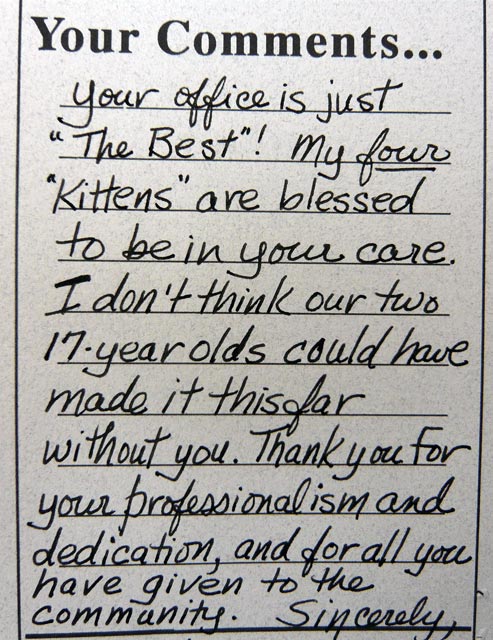 Your Comments...
Your office is just
"The Best"! My four
"Kittens" are blessed
to be in your care.
I don't think our two
17-year olds could have
made it this far
without you. Thank you for
your professionalism and
dedication, and for all you
have given to the
community. Sincerely,